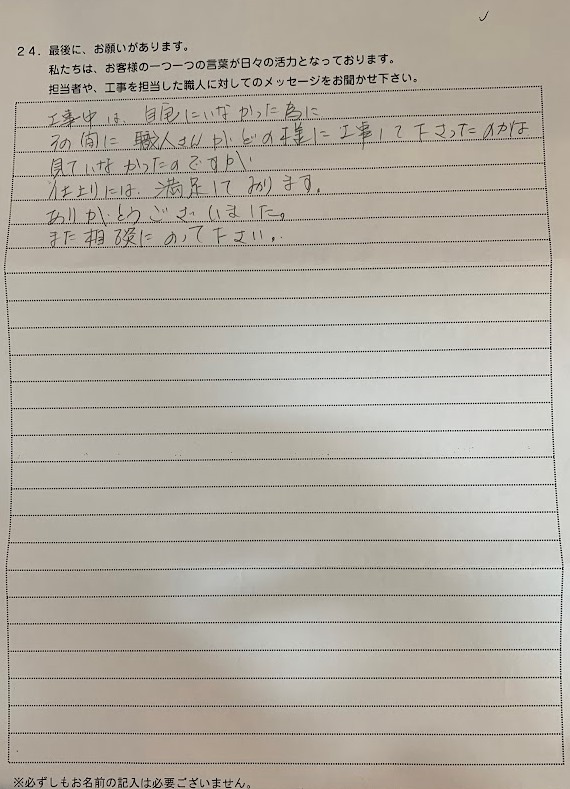 24. 最後に、お願いがあります。
私たちは、お客様の一つ一つの言葉が日々の活力となっております。
担当者や、工事を担当した職人に対してのメッセージをお聞かせ下さい。
工事中は、自宅にいなかった為に
その間に職人さんがどの様に工事して下さったのかは
見ていなかったのですが
仕上りには、満足しております。
ありがとうございました。
また相談にのって下さい。
※必ずしもお名前の記入は必要ございません。